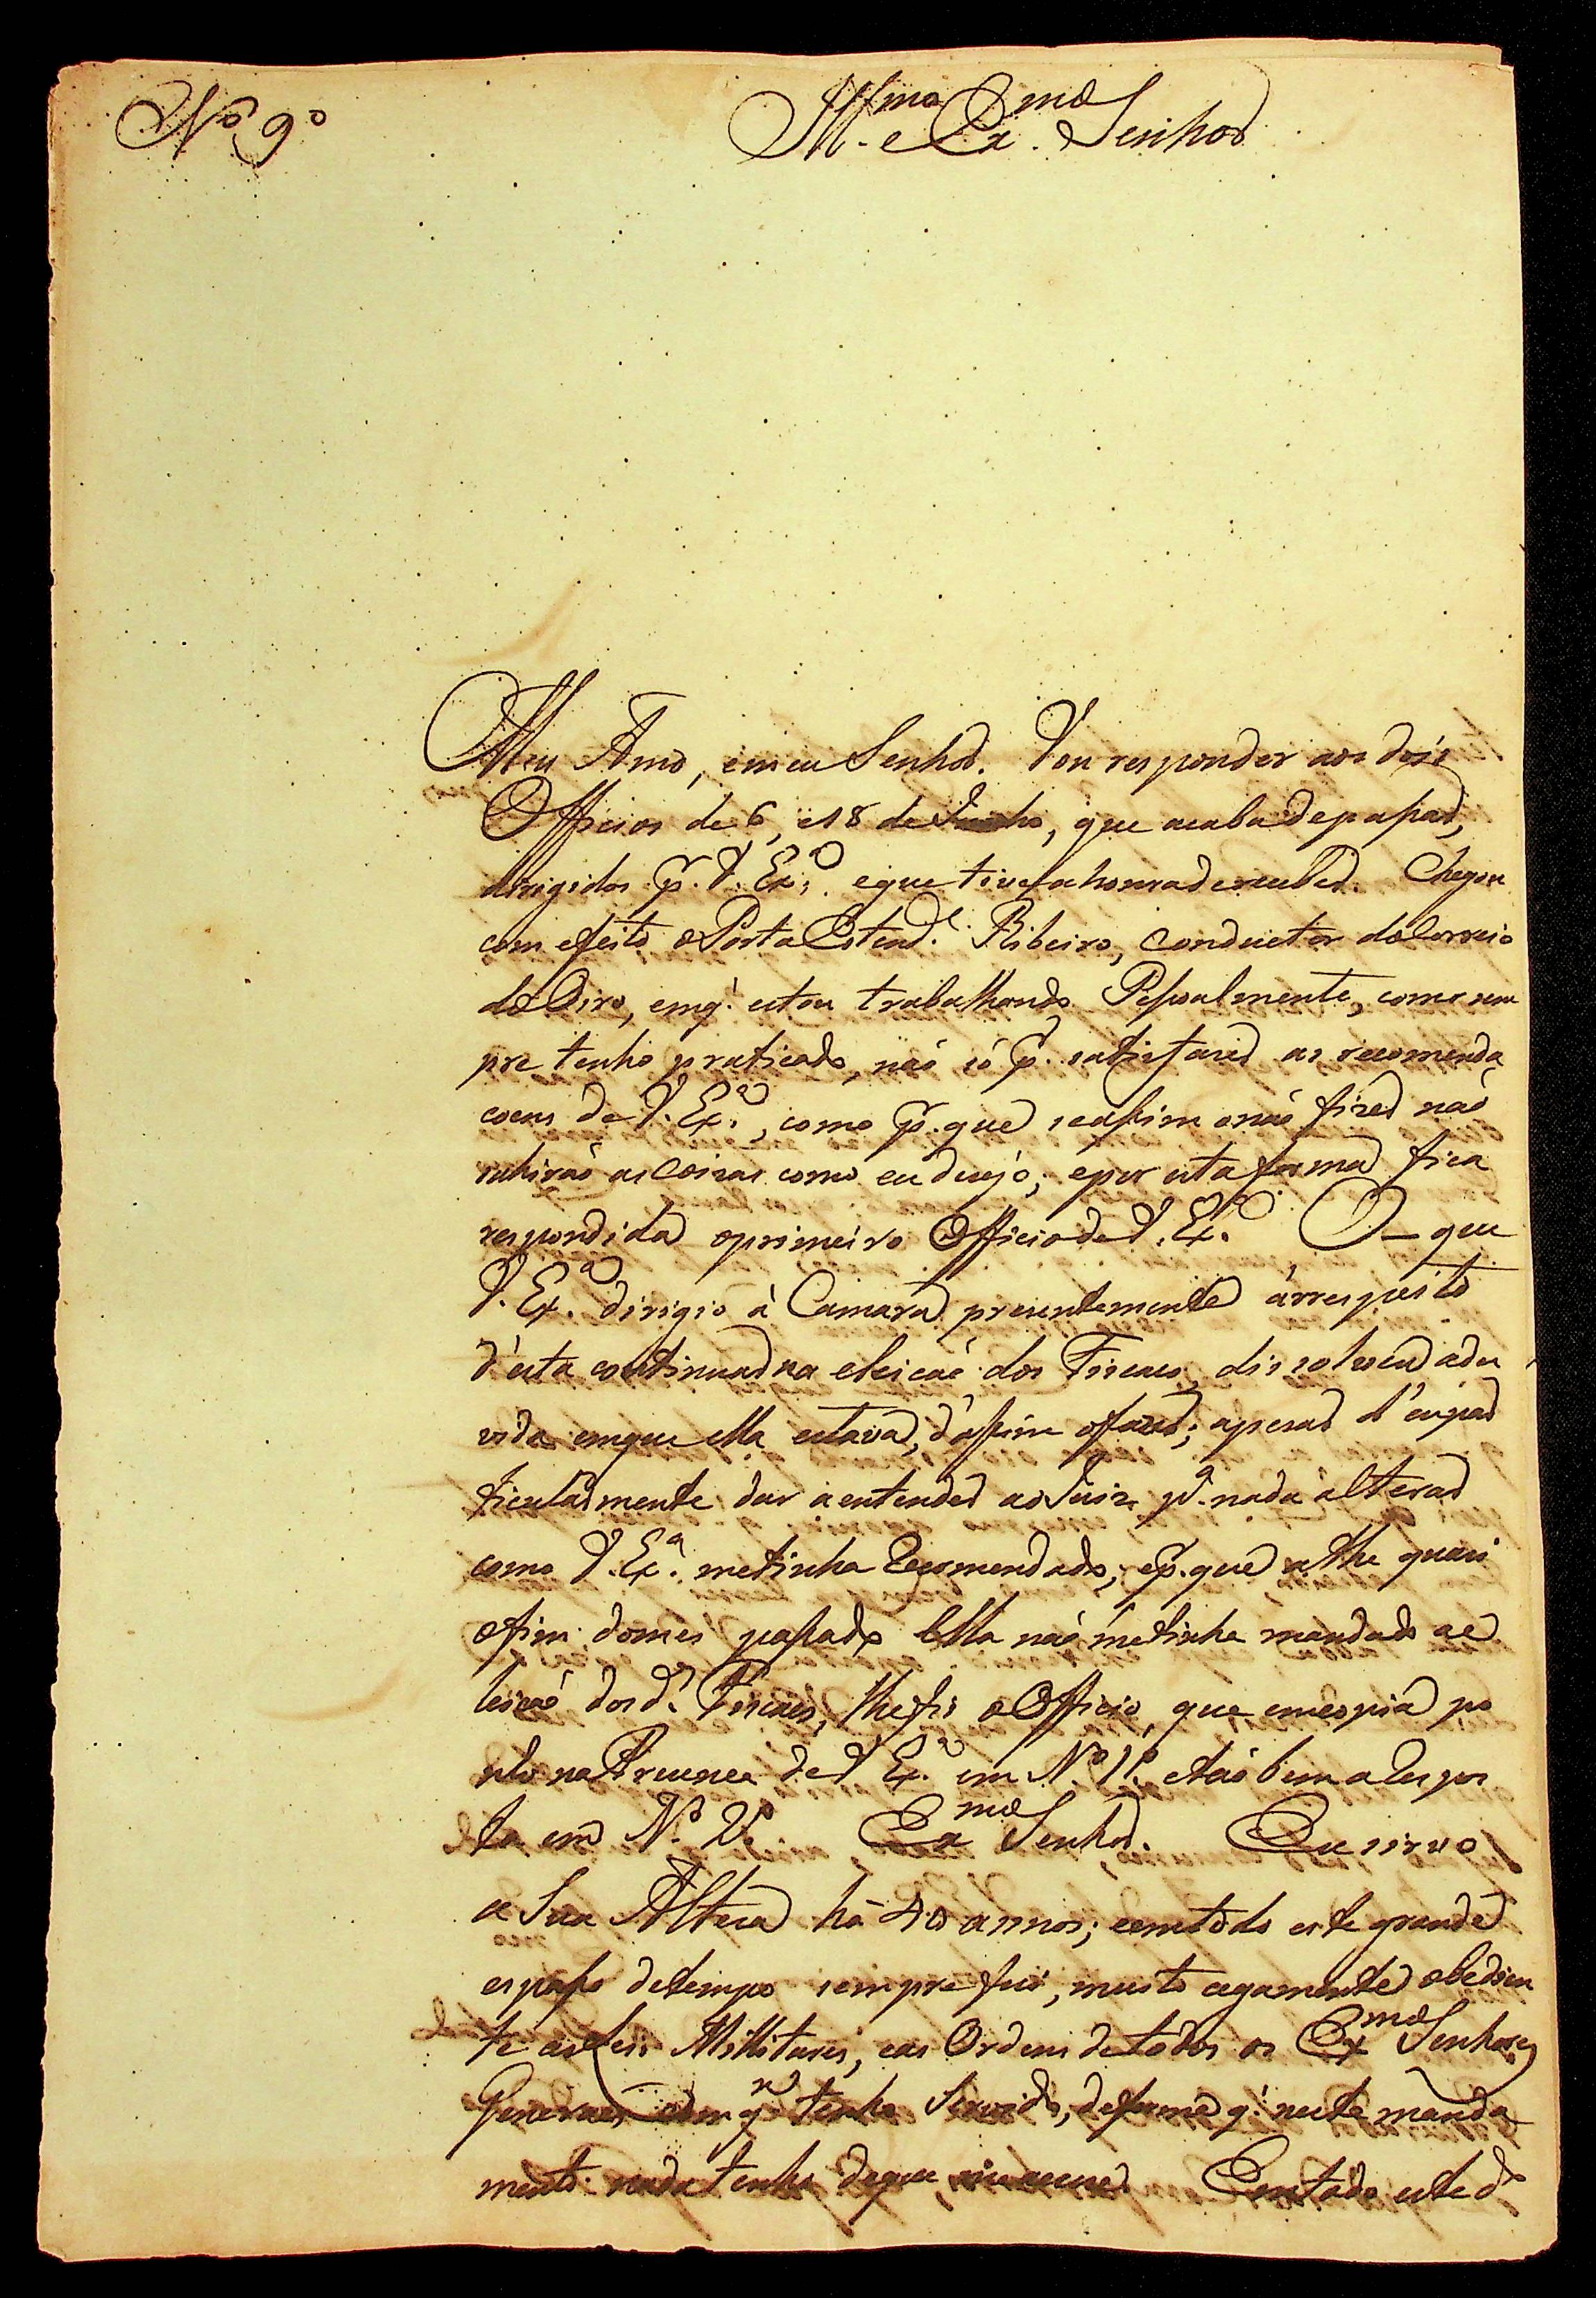 Nº 9º
Illmo e Exmo Senhor
Meu Amo, e meu Senhor. Vou responder aos dois
Officios de 6, e 18 de Junho, que acaba de passar,
dirigidos pr. V. Exa. e que tive a honra de receber. Chegou
com efeito o Porta Estende. Ribeiro, conductor do Correio
do Oiro, em q. estou trabalhando Pessoalmente, como sem
pre tenho praticado, naó só pr. satisfazer as recomenda
coens de V. Exa., como pr. que se assim o naó fizer naó
sahiraó as Coizas como eu dezejo; e por esta forma fica
respondida o primeiro Officio de V. Exa. O que
V. Exa. dirigio à Camara prezentemente árrespeito
d'esta continuar na eleicaó dos Fiscaes, dissolveu a du
vida em que ella estava, d'assim o fazer; apezar d'eu par
ticularmente dar a entender ao Juiz pa. nada alterar
como V. Exa. me tinha Recomendado; e pr. que athe quasi
o fim do mes passado Ella naó me tinha mandado a e
leicaó dos ds. Fiscaes, lhe fis o Officio, que em copia po
nho na Prezenca de V Exa. em Nº 1º. e taó bem a Respos
ta em Nº. 2º. Exmo Senhor. Eu sirvo
a Sua Alteza há 40 annos; e em todo este grande
espaso de tempo sempre fui, muito cegamente obedien
te as Leis Millitares, e as Ordens de todos os Exmos Senhores
Generaes com qm tenho Servido, de forma q. neste manda
mento nada tenho de que me acuze. Em todo este d